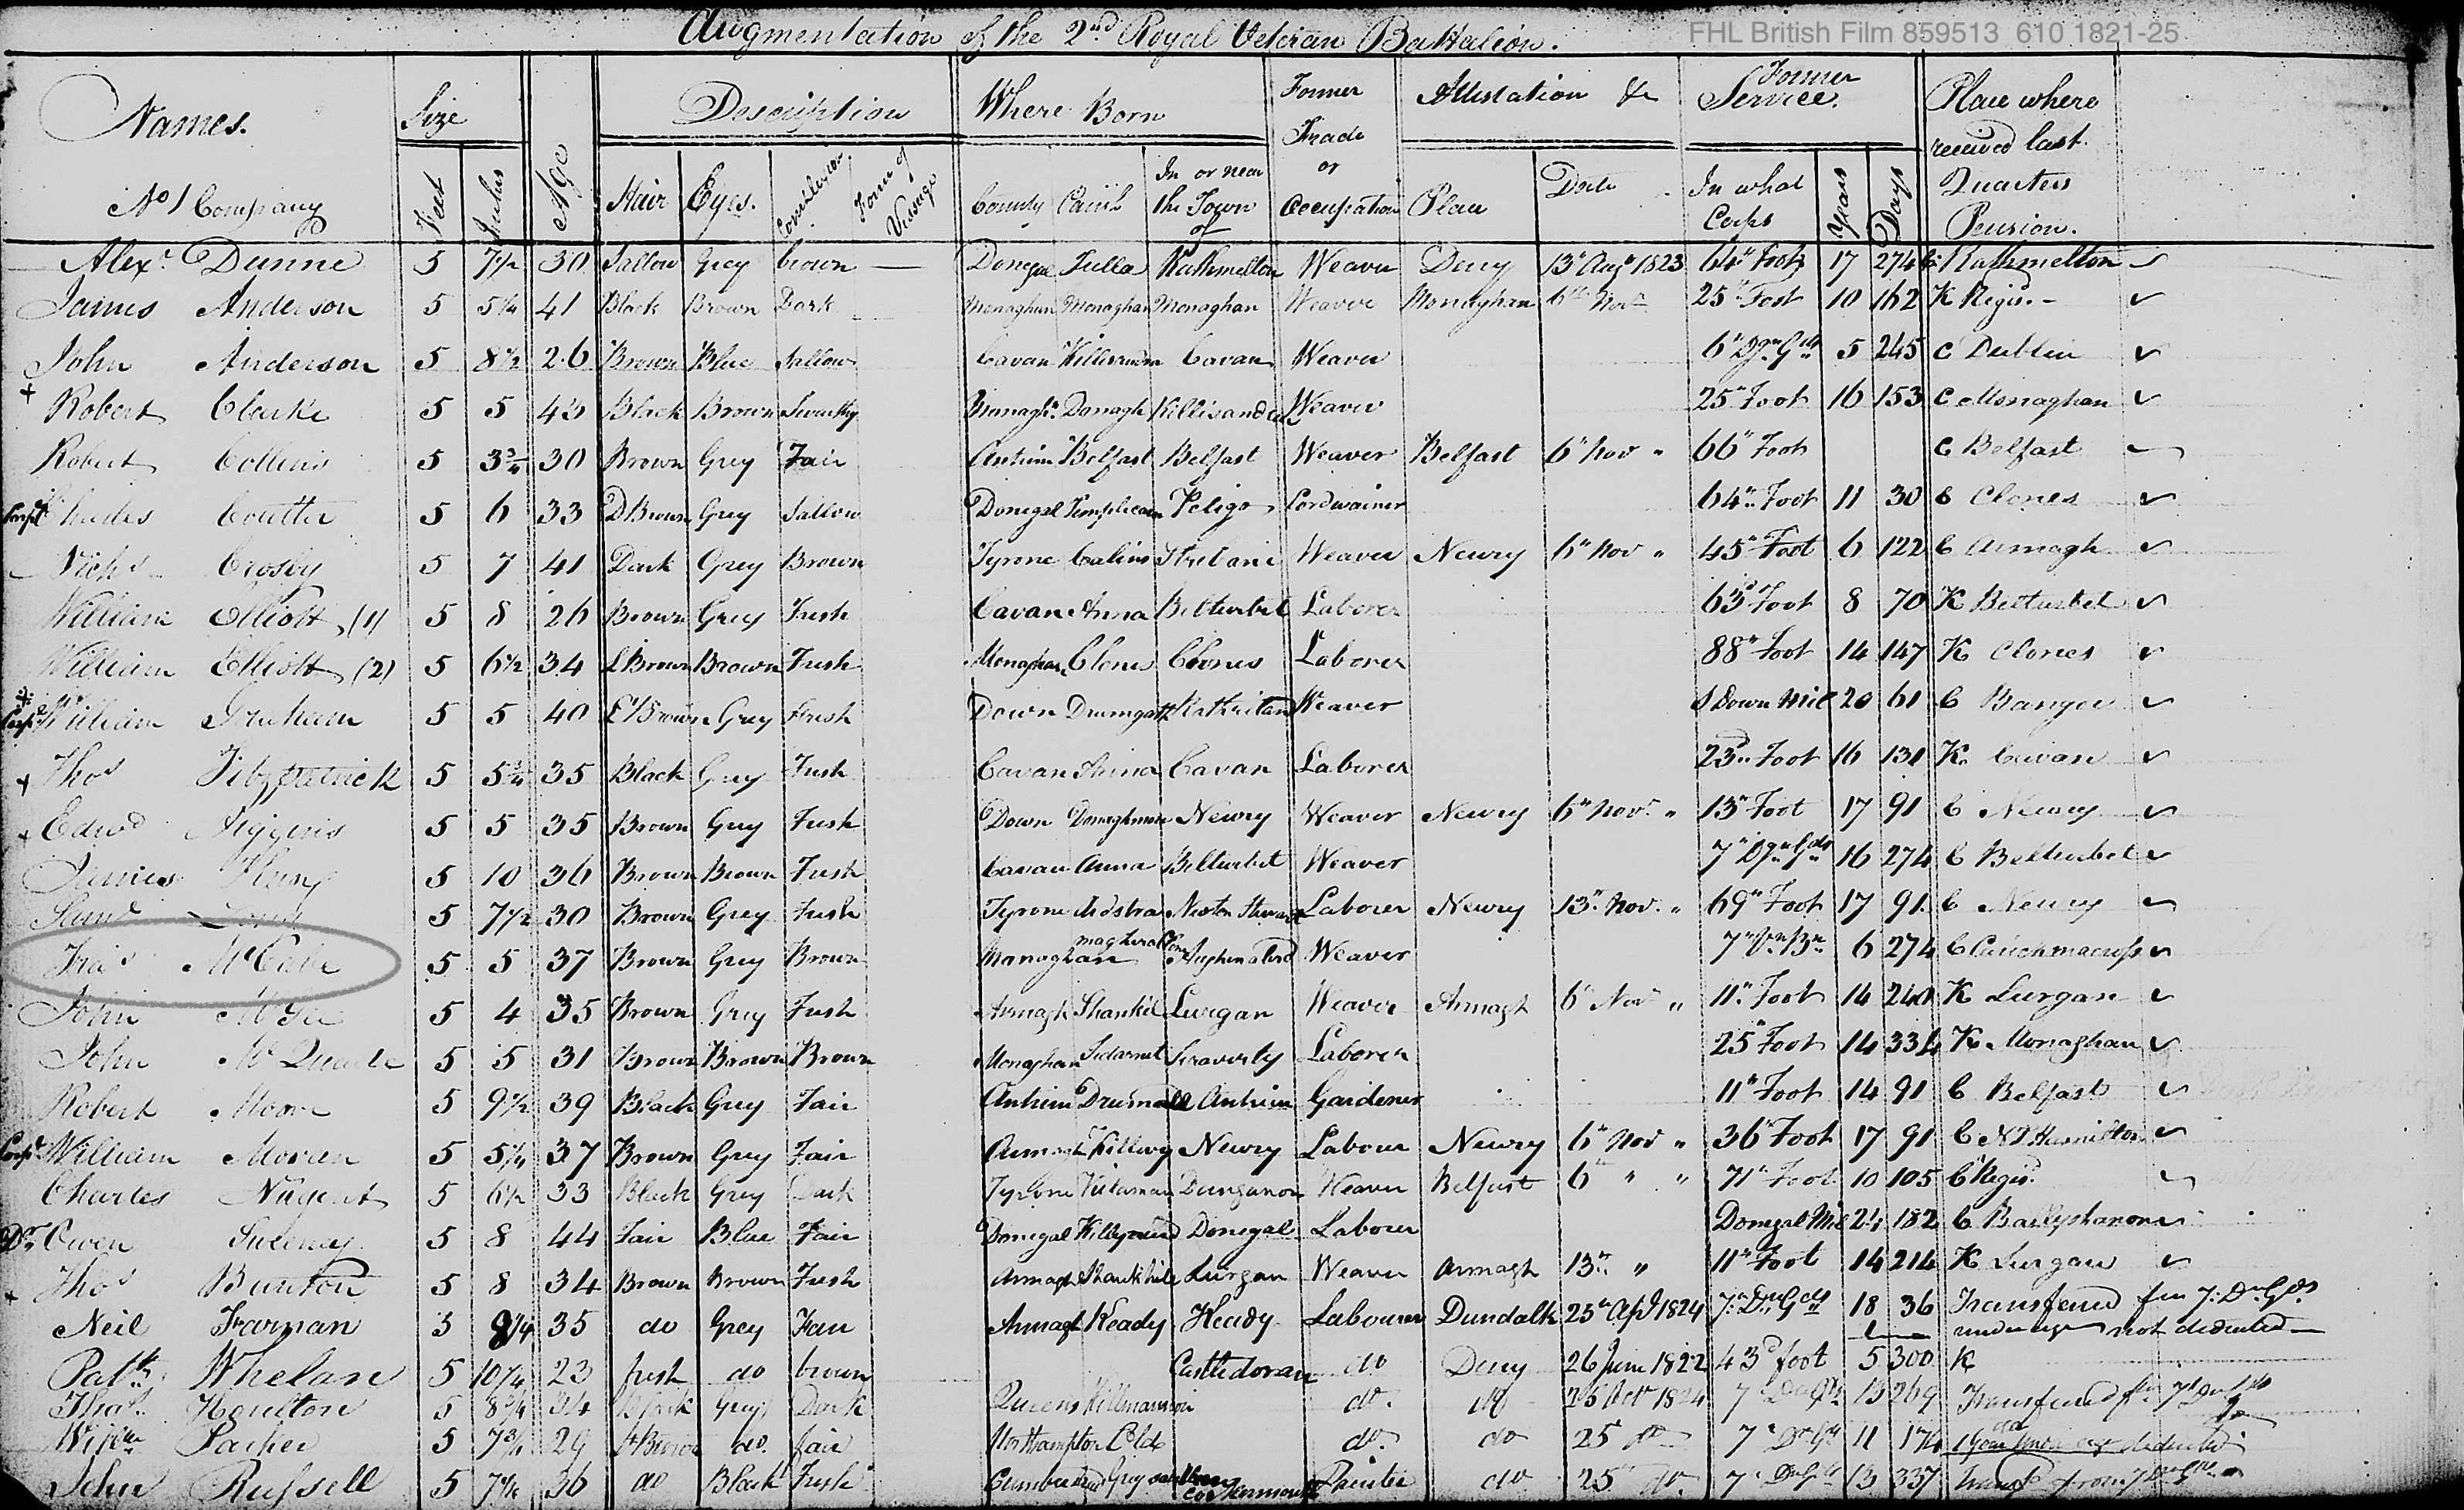 Augmentation of the 2nd Royal Veteran Battalion.
FHL British Film 859513 610 1821-25
Names. Size Age Description Where Born Former Trade or Occupation Attestation &c Former Service. Place where received last Quarters Pension.
No 1 Company Feet Inches Hair Eyes. Complexion Form of Visage County Parish In or near the Town of Place Date In what Corps Years Days
Alexr. Dunne 5 7½ 30 Sallow Grey brown — Donegal Tulla Rathmelton Weaver Derry 13th Augt 1823 64th Foot 17 274 Rathmelton
James Anderson 5 5¼ 41 Black Brown Dark Monaghan Monaghan Monaghan Weaver Monaghan 6th Novr 25th Foot 10 162 K Regis.
John Anderson 5 8½ 26 Brown Blue Sallow Cavan Cavan Weaver 6th Dgn Gds 5 245 C Dublin
+ Robert Clarke 5 5 43 Black Brown Swarthy Donagh Weaver 25th Foot 16 153 C Monaghan
Robert Collins 5 3¾ 30 Brown Grey Fair Antrim Belfast Belfast Weaver Belfast 6th Nov " 66th Foot C Belfast
Corpl Charles Coulter 5 6 33 D Brown Grey Sallow Donegal Templecarn Petigo Cordwainer 64th Foot 11 30 C Clones
Nichs Crosby 5 7 41 Dark Grey Brown Tyrone Strabane Weaver Newry 6th Nov " 45th Foot 6 122 C Armagh
William Elliott (1) 5 8 26 Brown Grey Fresh Cavan Anna Belturbet Laborer 63d Foot 8 70 K Belturbet
William Elliott (2) 5 6½ 34 L Brown Brown Fresh Monaghan Clones Clones Laborer 88th Foot 14 147 K Clones
Corpl William Graham 5 5 40 L Brown Grey Fresh Down Drumgath Weaver S Down Mil 20 61 C Bangor
+ Thos Fitzpatrick 5 5¾ 35 Black Grey Fresh Cavan Anna Cavan Laborer 23d Foot 16 131 K Cavan
+ Edwd Higgins 5 5 35 Brown Grey Fresh Down Donaghmore Newry Weaver Newry 6th Novr " 13th Foot 17 91 C Newry
James 5 10 36 Brown Brown Fresh Cavan Anna Belturbet Weaver 7th Dgn Gds 16 274 C Belturbet
Saml 5 7½ 30 Brown Grey Fresh Tyrone Newton Stewart Laborer Newry 13th Nov. " 69th Foot 17 91 C Newry
Fras McCabe 5 5 37 Brown Grey Brown Monaghan magheraclone Weaver 7th Vn Bn 6 274 C Carrickmacross
John McGee 5 4 35 Brown Grey Fresh Armagh Shankil Lurgan Weaver Armagh 6th Novr " 11th Foot 14 240 K Lurgan
John McQuade 5 5 31 Brown Brown Brown Monaghan Laborer 25th Foot 14 334 K Monaghan
Robert Moore 5 9½ 39 Black Grey Fair Antrim Antrim Gardener 11th Foot 14 91 C Belfast
Corpl William Moran 5 5¼ 37 Brown Grey Fair Armagh Killevy Newry Labour Newry 6th Nov " 36th Foot 17 91 C N T Hamilton
Charles Nugent 5 6½ 33 Black Grey Dark Tyrone Dunganon Weaver Belfast 6th " " 71st Foot 10 105 C Regis.
Dr Owen Sweeney 5 8 44 Fair Blue Fair Donegal Donegal Labour Donegal Mil 24 182 C Ballyshanon
+ Thos Bunton 5 8 34 Brown Brown Fresh Armagh Shankhill Lurgan Weaver Armagh 13th " 11th Foot 14 214 K Lurgan
Neil Farman 5 8¼ 35 do Grey Fair Armagh Keady Keady Labourer Dundalk 25th Apl 1824 7th Dn Gds 18 36 Transferred fm 7th Dn Gds
under age not deducted
Patk Whelan 5 10¼ 23 fresh do brown Castledoran do Derry 26 June 1822 43d foot 5 300 K
Thos. Houlton 5 8¾ 34 Black Grey Dark Queens do. do 25 Octr 1824 7th Dn Gds 13 269 Transferred fm 7th Dn Gds
Willm Parker 5 7¾ 29 Lt Brown do. fair Northampton do. do 25 do 7th Dn Gds 11 174
John Russell 5 7¼ 36 do Black Fresh Cumberland Cockermouth Printer do 25 do. 7th Dn Gds 13 337 Transfd from 7 Dn Gds